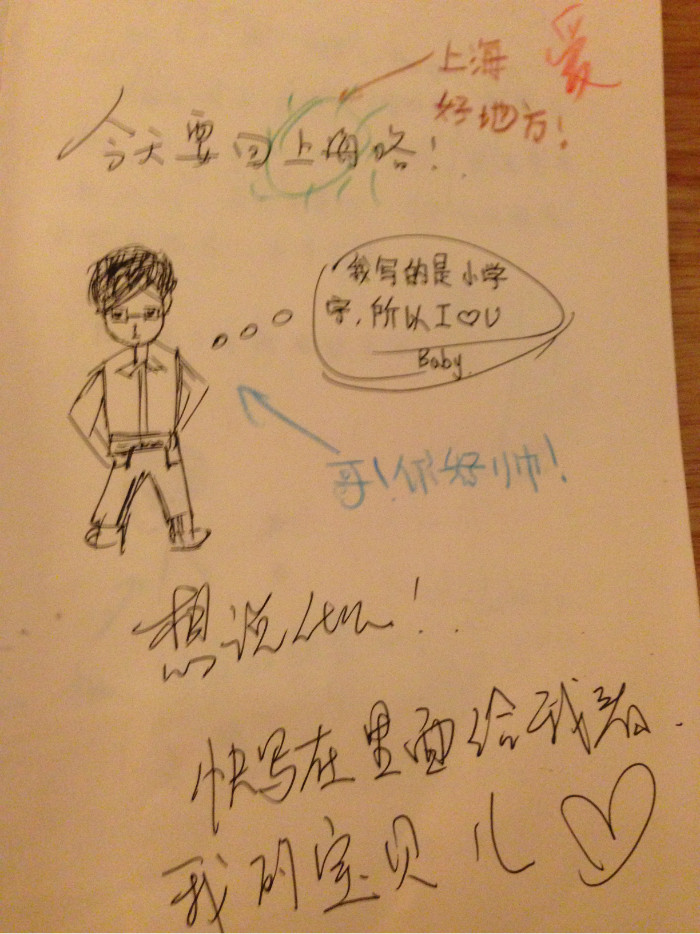 上海 爱
好地方!
今天要回上海咯!
我写的是小学
字,所以I♡U
Baby.
哥!你好帅!
想说什么!
快写在里面给我看.
我的宝贝儿♡